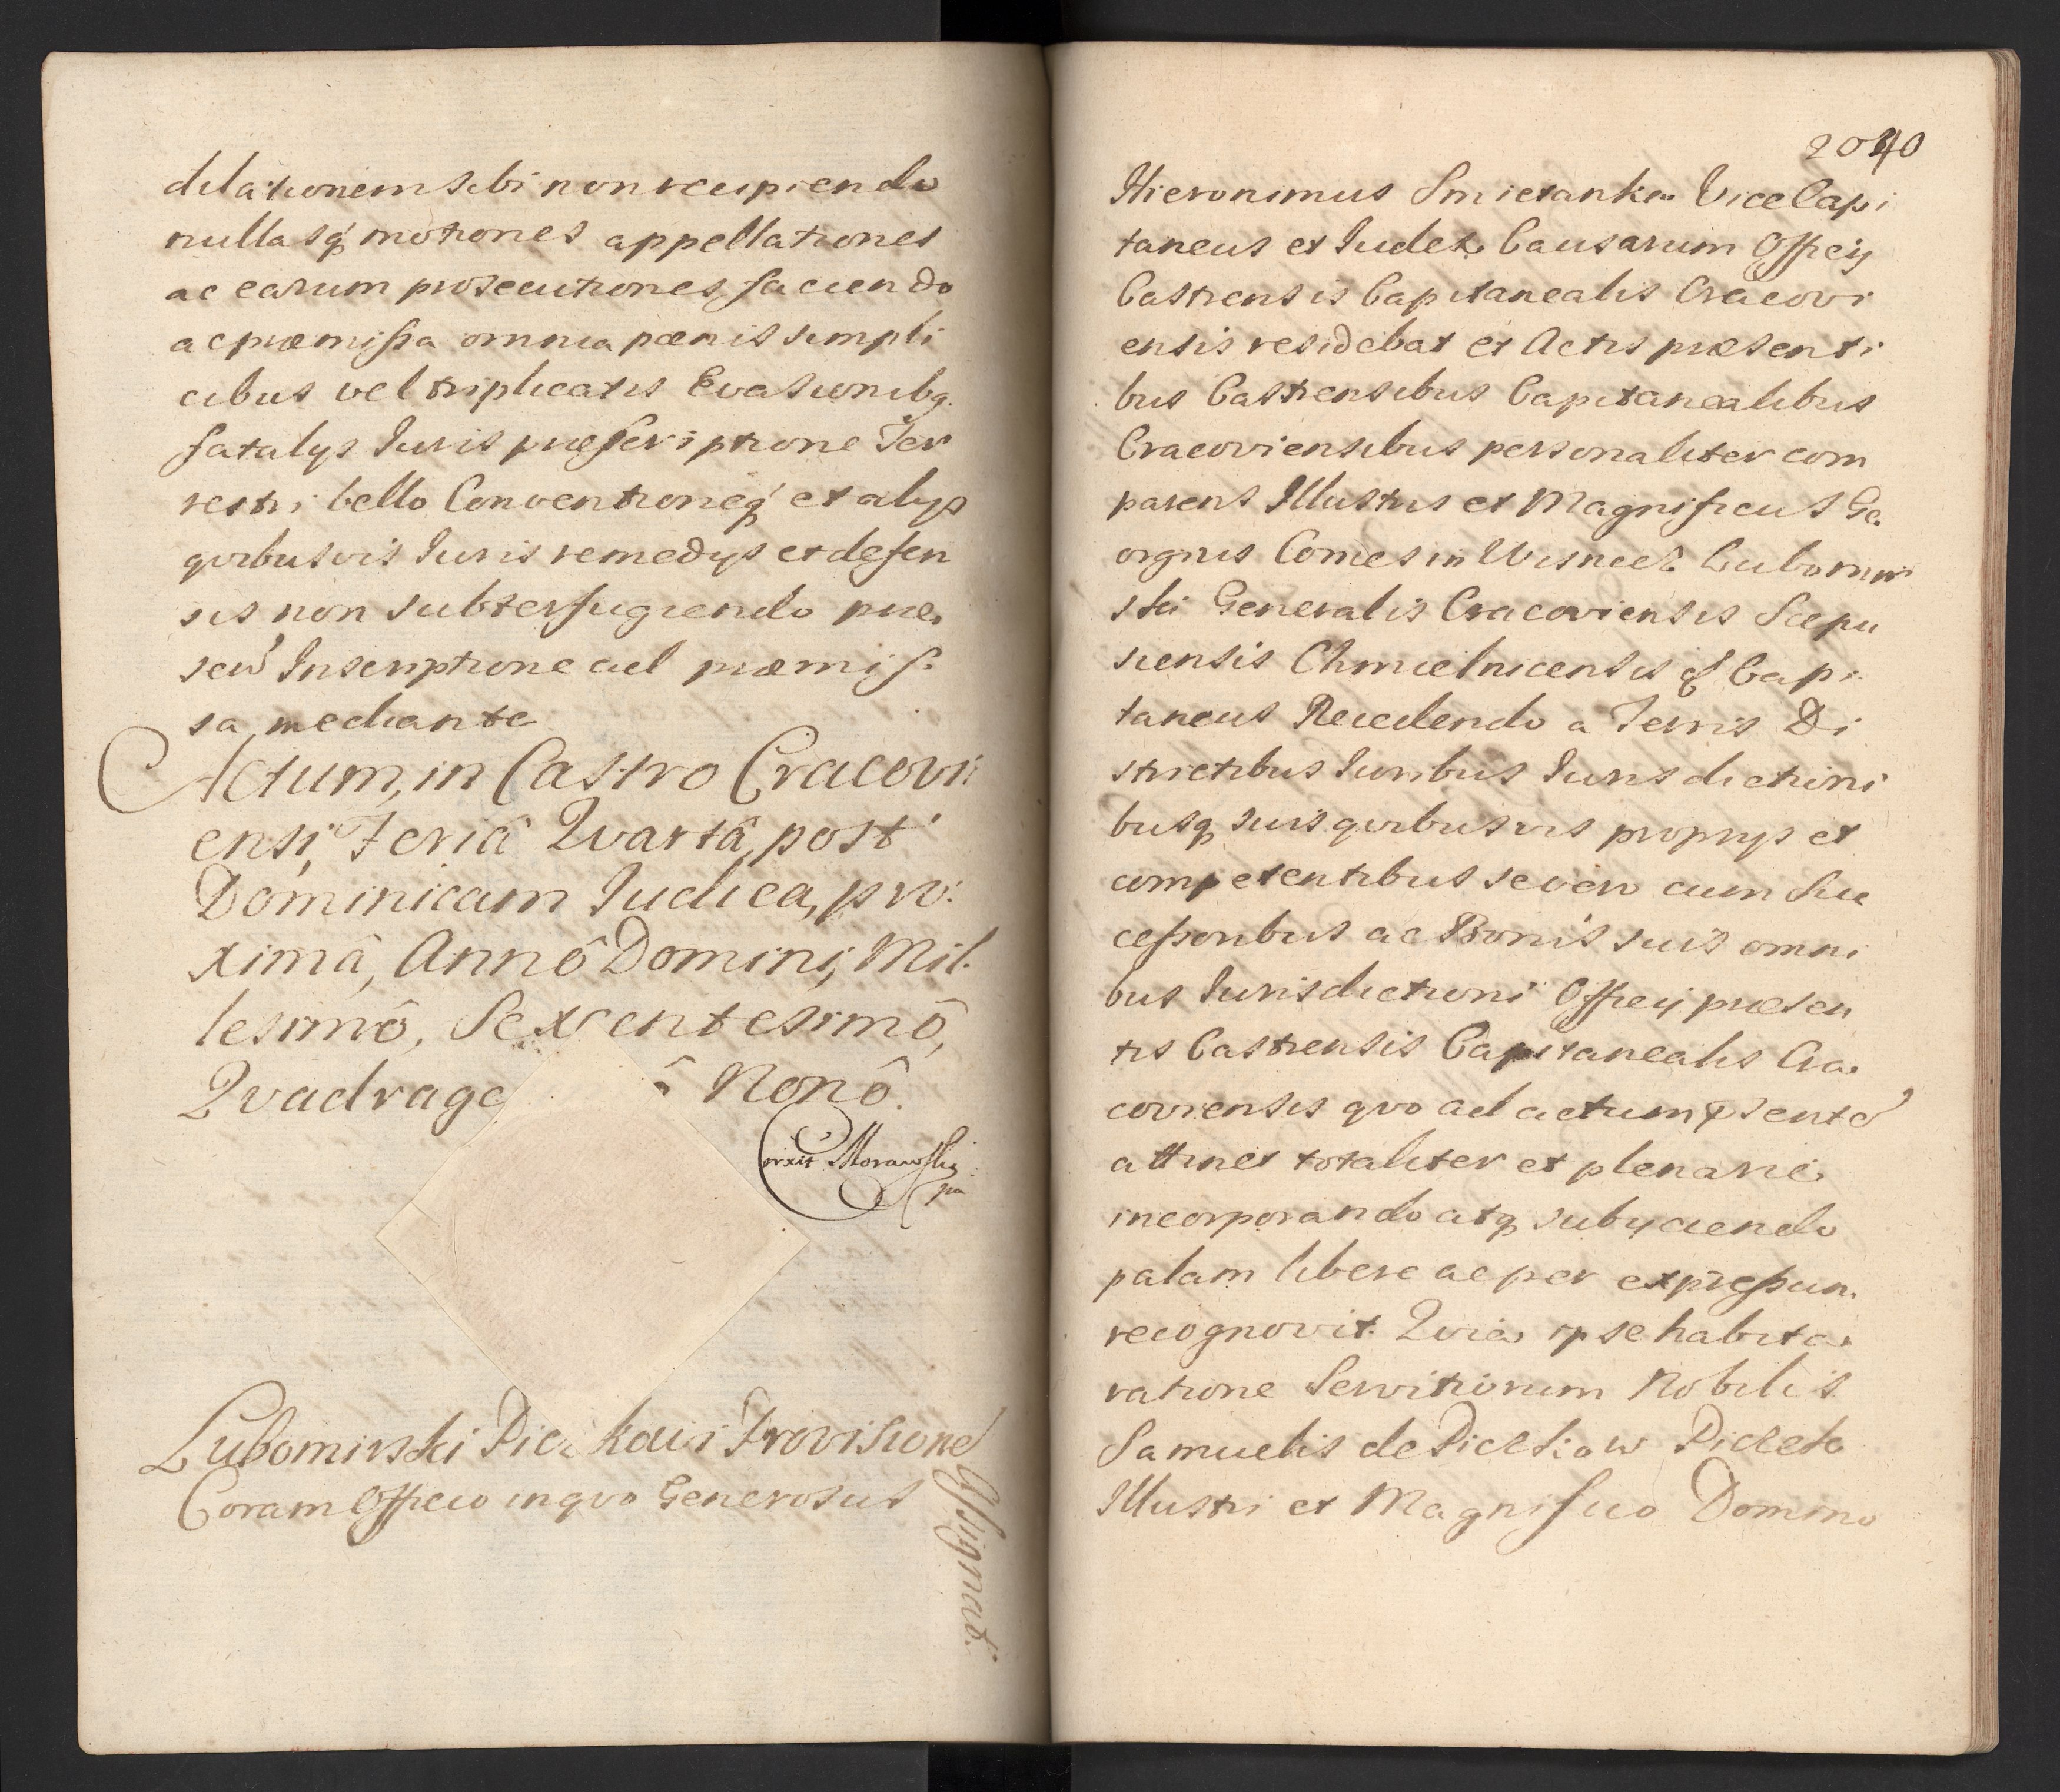 dilationem sibi non recipiendo
nullasq motiones appellationes
ac earum prosecutiones faciendo
ac præmissa omnia pœnis simpli
cibus vel triplicatis Evasionibq
fatalys Iuris præscriptione Ter
restri bello Conventioneq et alys
qvibusvis Iuris remedys et defen
sis non subterfugiendo præ
sen Inscriptione ad præmis
sa mediante
Actum, in Castro Cracovi
ensi, Feriâ Qvartâ, post
Dominicam Iudica, pro
ximâ, Annô Domini, Mil
lesimô, Sexcentesimô,
Qvadrage ô Nonô.
Correxit Morawsky
pa
Lubomirski Provisione
Assignat.
Coram Officio in qvo Generosus
2040
Hieronimus Smietanka Vice Capi
taneus et Iudex Causarum Officy
Castrensis Capitanealis Cracovi
ensis residebat et Actis præsenti
bus Castrensibus Capitanealibus
Cracoviensibus personaliter com
parens Illustris et Magnificus Ge
orgius Comes in Wisnicz Lubomir
ski Generalis Cracoviensis Scepu
siensis Chmielnicensis & Capi
taneus Recedendo a Terris Di
strictibus Iuribus Iurisdictioni
busq suis qvibusvis proprys et
competentibus seven cum Suc
cessoribus ac Bonis suis omni
bus Iurisdictioni Officy præsen
tis Castrensis Capitanealis Cra
coviensis qvo ad actum psente
attinet totaliter et plenarie
incorporando atq subyciendo
palam libere ac per expressum
recognovit. Qvia ipse habita
ratione Servitiorum Nobilis
Samuelis de Piczkow
Illustri et Magnifico Domino